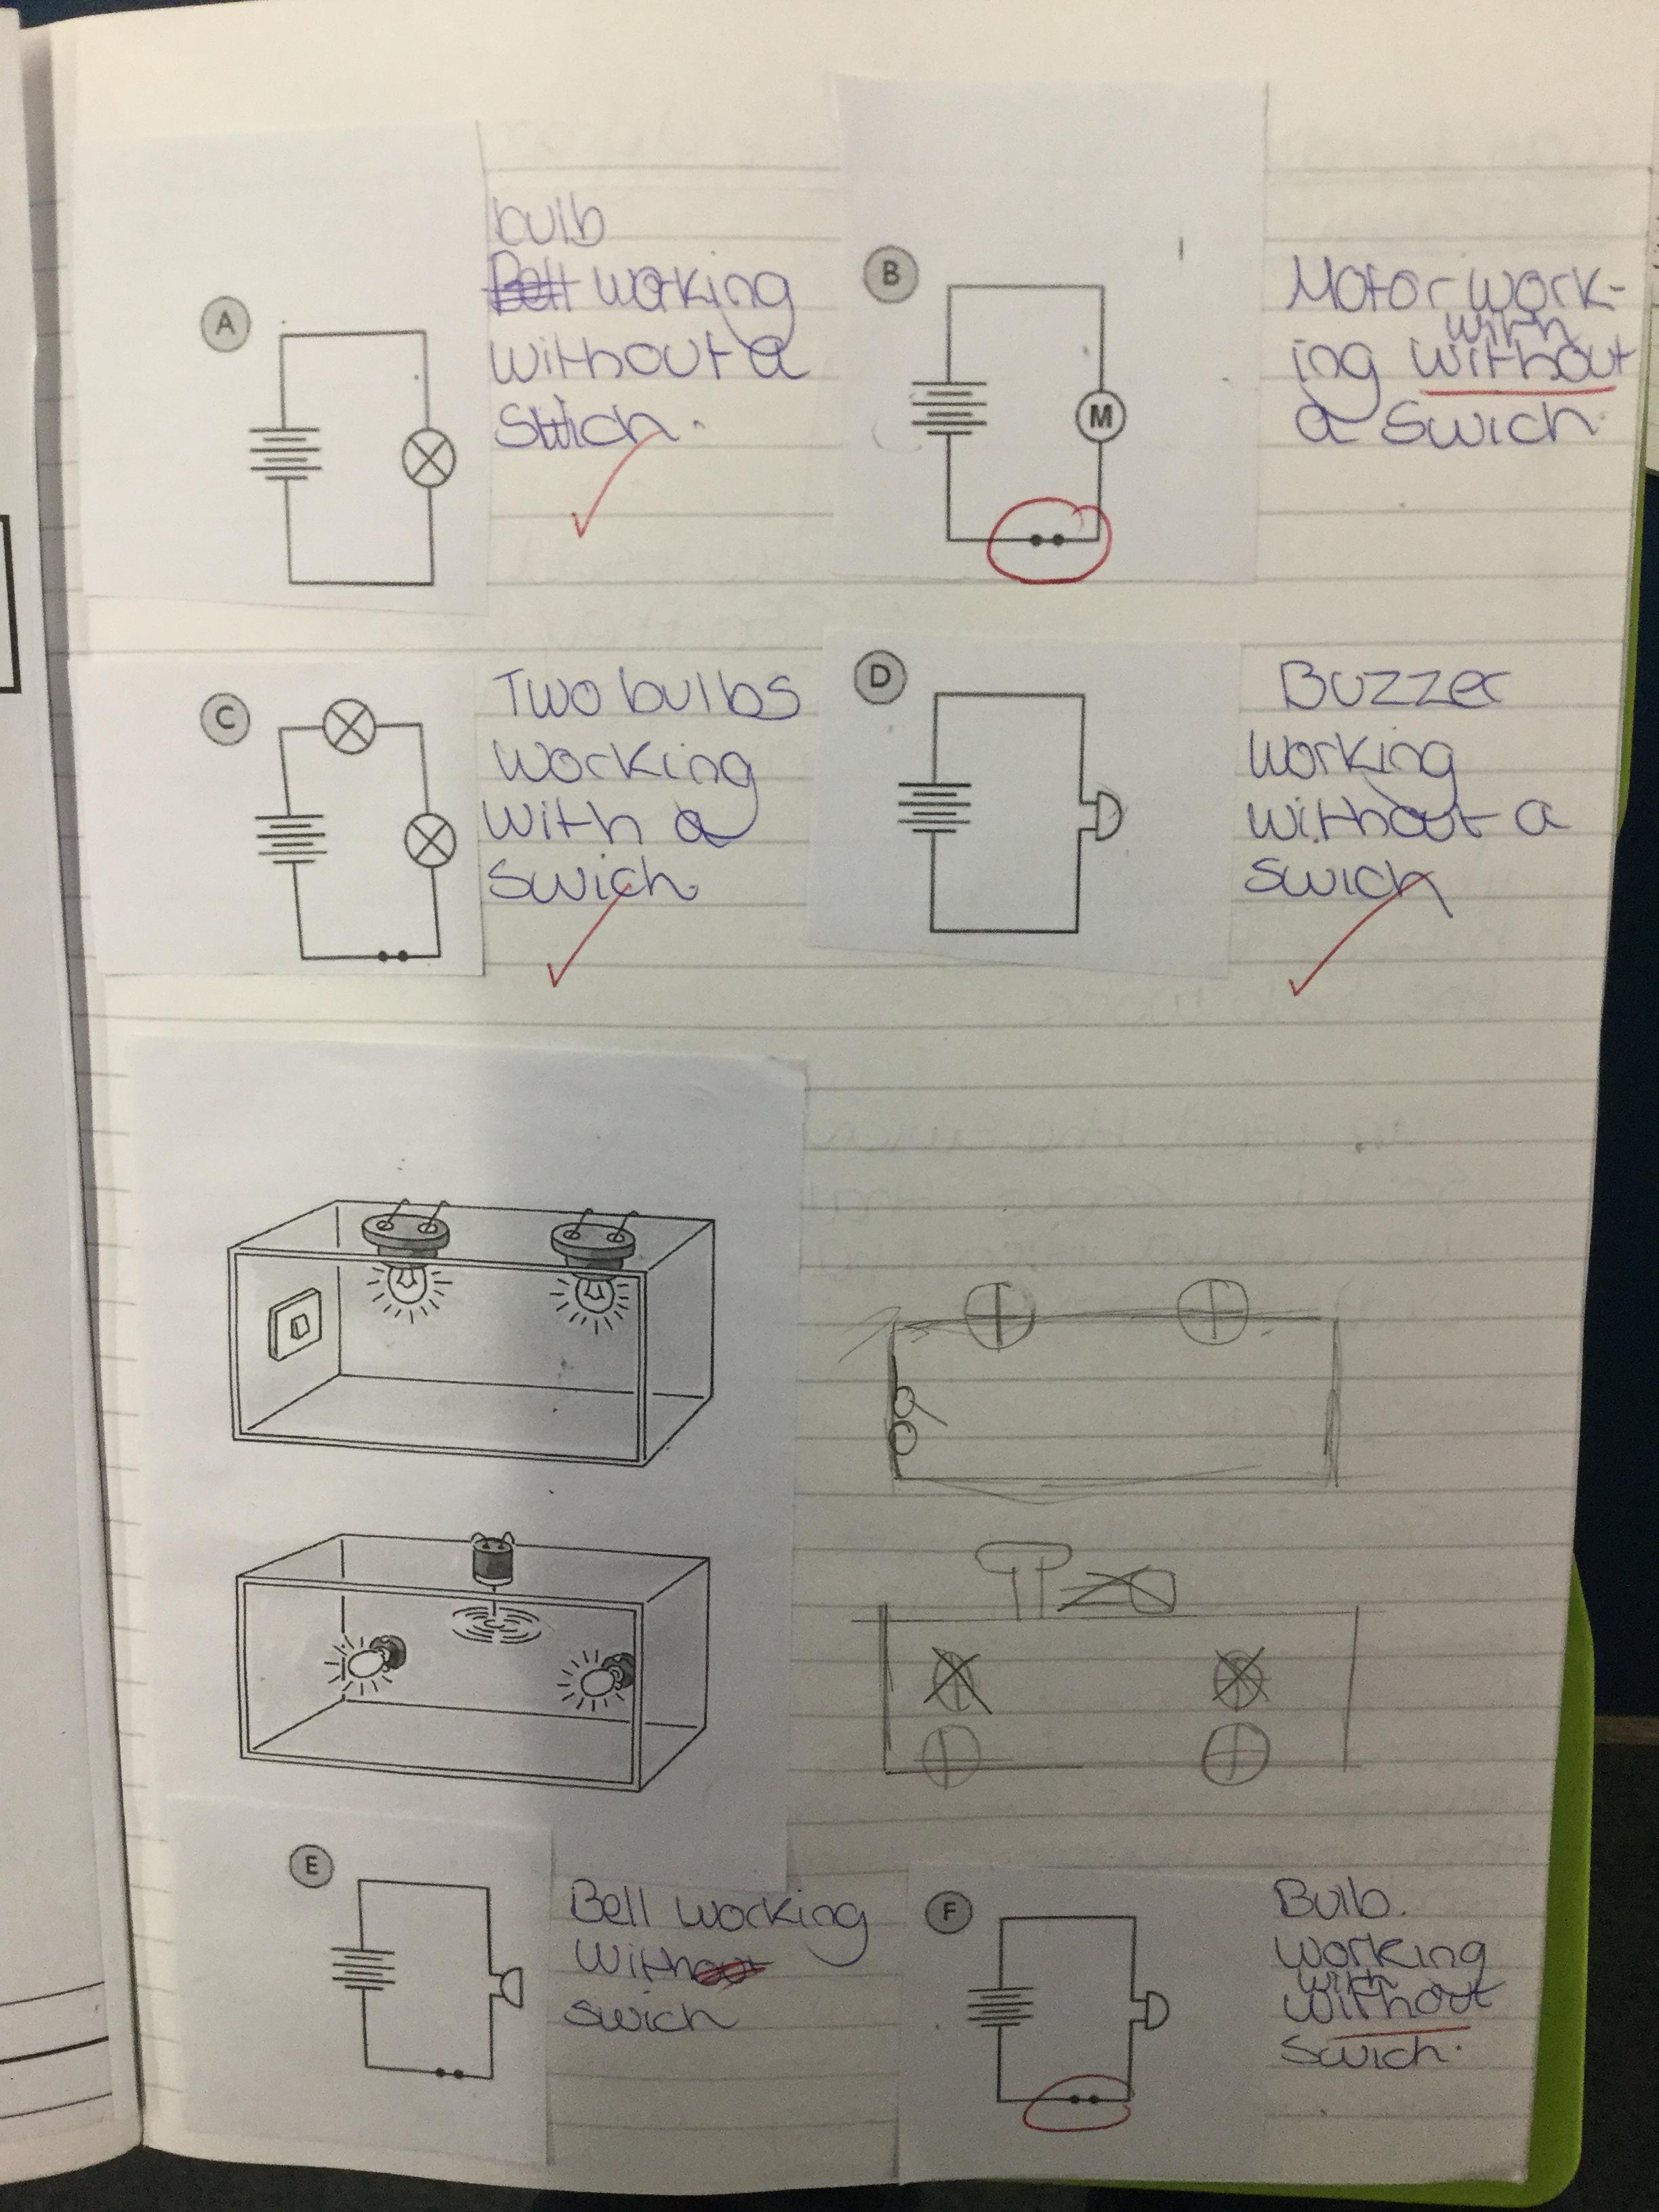 A
bulb
Bell working
without a
Swich.
B
Motor work-
with
ing without
a Swich.
M
C
Two bulbs
working
with a
swich.
D
Buzzer
working
without a
swich
E
Bell working
without
swich
F
Bulb.
working
with
without
swich.